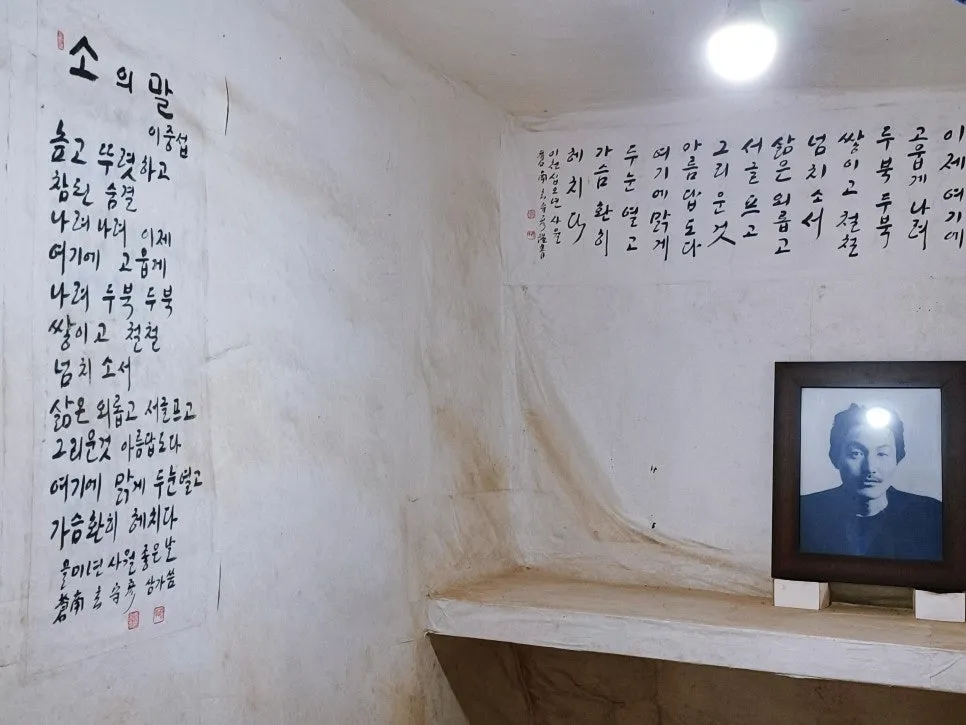 소의 말
이중섭
높고 뚜렷하고
참된 숨결
나려 나려 이제
여기에 고웁게
나려 두북 두북
쌓이고 철철
넘치소서
삶은 외롭고 서글프고
그리운것 아름답도다
여기에 맑게 두눈열고
가슴환히 헤치다
을미년 사월 좋은날
蒼南 삼가씀
이제 여기에
고웁게 나려
두북 두북
쌓이고 철철
넘치소서
삶은 외롭고
서글프고
그리운것
아름답도다
여기에 맑게
두눈 열고
가슴 환히
헤치다
이천십오년 사월
蒼南